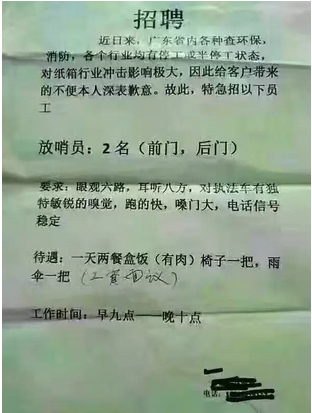 招聘
近日来，广东省内各种查环保，
消防，各个行业均有停工或半停工状态，
对纸箱行业冲击影响极大，因此给客户带来
的不便本人深表歉意。故此，特急招以下员
工
放哨员：2名（前门，后门）
要求：眼观六路，耳听八方，对执法车有独
特敏锐的嗅觉，跑的快，嗓门大，电话信号
稳定
待遇：一天两餐盒饭（有肉）椅子一把，雨
伞一把（工资面议）
工作时间：早九点——晚十点
电话：